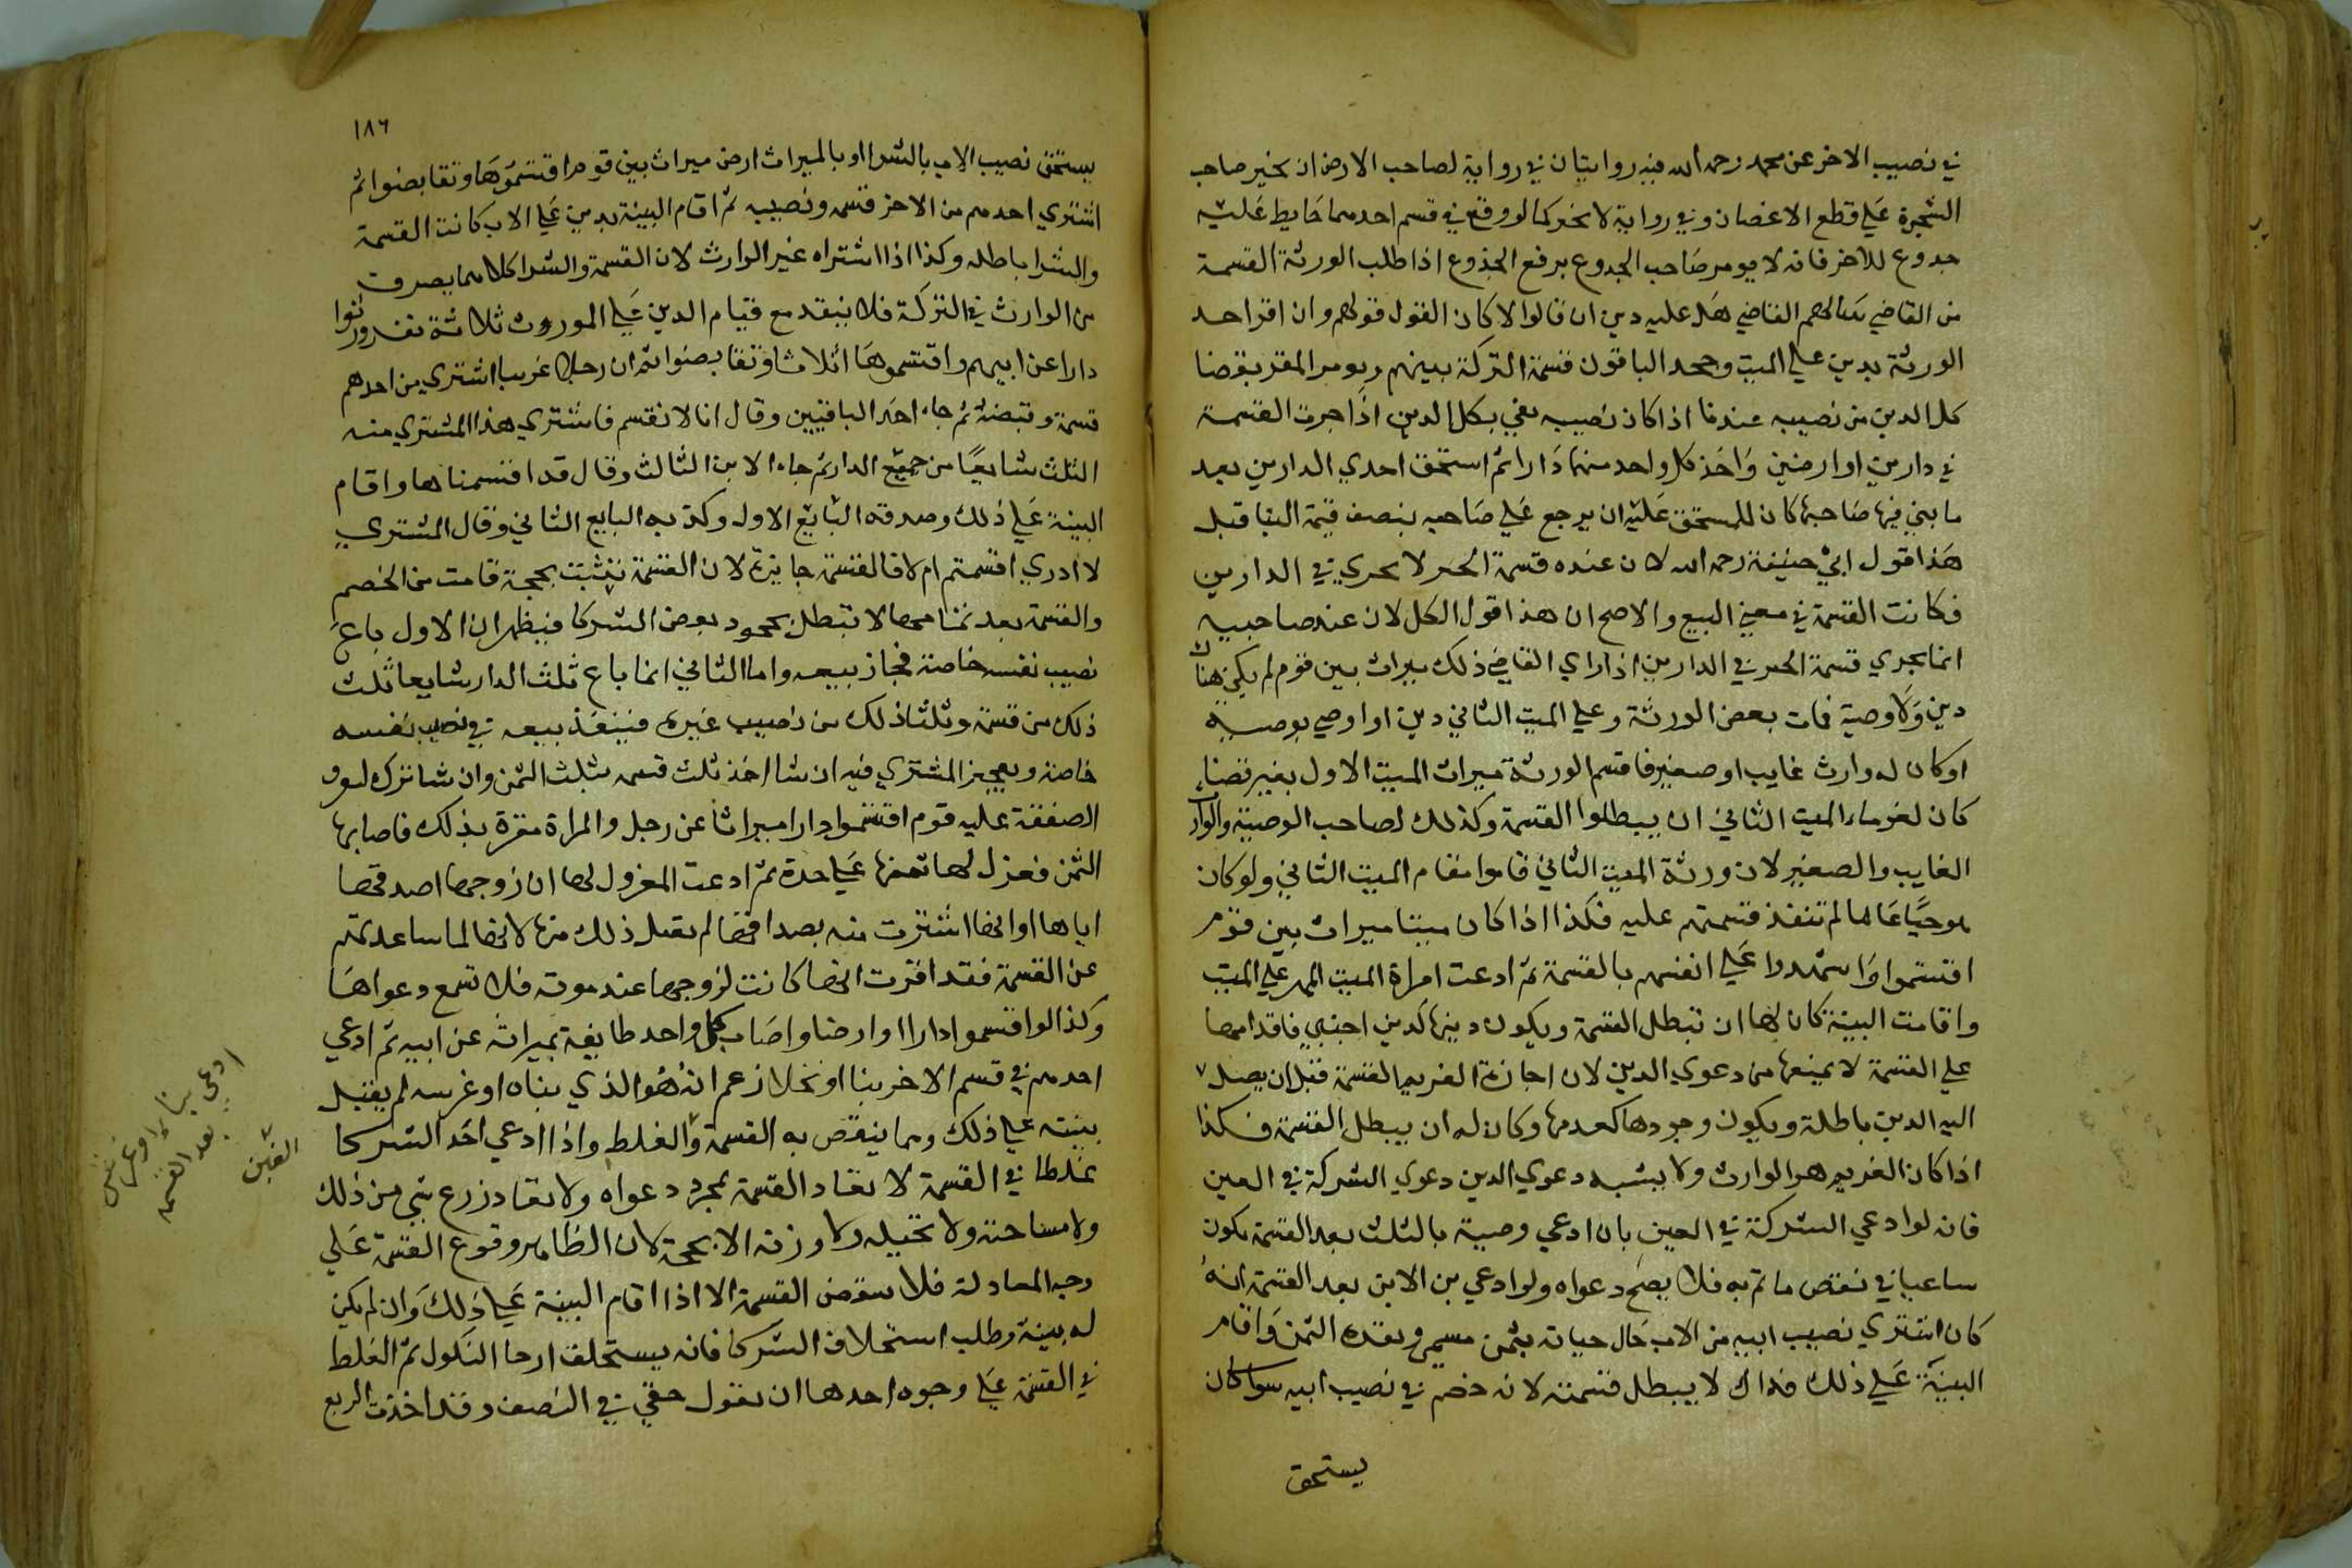 في نصيب الاخر عن محمد رحمه الله فيه روايتان في رواية لصاحب الارض ان يخير صاحب
الشجرة علي قطع الاغصان وفي رواية لا يخير كما لو وقع في قسم احدهما حايط عليه
جدوع للاخر فانه لا يومر صاحب الجدوع برفع الجذوع اذا طلب الورثة القسمة
من القاضي يسالهم القاضي هل عليه دين ان قالوا لا كان القول قولهم وان اقر احد
الورثة بدين علي الميت وجحد الباقون قسمة التركة بينهم ويومر المقر بقضا
كل الدين من نصيبه عندنا اذا كان نصيبه يفي بكل الدين اذا جرت القسمة
في دارين او ارضين واخذ كل واحد منهما دارا ثم استحق احدي الدارين بعد
ما بني فيها صاحبها كان للمستحق عليه ان يرجع علي صاحبه بنصف قيمة البنا قيل
هذا قول ابي حنيفة رحمه الله لان عنده قسمة الجبر لا يجري في الدارين
فكانت القسمة في معني البيع والاصح ان هذا قول الكل لان عند صاحبيه
انما يجري قسمة الجبر في الدارين اذا راي القاضي ذلك ميراث بين قوم لم يكن هناك
دين ولا وصية فمات بعض الورثة وعلي الميت الثاني دين او اوصي بوصية
او كان له وارث غايب او صغير فاقتسم الورثة ميراث الميت الاول بغير قضاء
كان لغرماء الميت الثاني ان يبطلوا القسمة وكذلك لصاحب الوصية والوارث
الغايب والصغير لان ورثة الميت الثاني قاموا مقام الميت الثاني ولو كان
هو حيا غايبا لم تنفذ قسمتهم عليه فكذا اذا كان ميتا ميراث بين قوم
اقتسموا واشهدوا علي انفسهم بالقسمة ثم ادعت امراة الميت المهر علي الميت
واقامت البينة كان لها ان تبطل القسمة ويكون دينها كدين اجنبي فاقدامها
علي القسمة لا يمنعها من دعوي الدين لان اجازة الغريم القسمة قبل ان يصل
اليه الدين باطلة ويكون وجودها كعدمها وكان له ان يبطل القسمة فكذا
اذا كان الغريم هو الوارث ولا يشبه دعوي الدين دعوي الشركة في العين
فانه لو ادعي الشركة في العين بان ادعي وصية بالثلث بعد القسمة يكون
ساعيا في نقض ما تم به فلا يصح دعواه ولو ادعي بن الابن بعد القسمة انه
كان اشتري نصيب ابيه من الاب حال حياته بثمن مسمي ونقده الثمن واقام
البينة علي ذلك لا يبطل قسمته لانه خصم في نصيب ابيه سوا كان
يستحق
١٨٦
يستحق نصيب الاب بالشرا او بالميراث ارض ميراث بين قوم اقتسموها وتقابضوا ثم
اشتري احدهم من الاخر قسمه ونصيبه ثم اقام البينة بدين علي الاب كانت القسمة
والشرا باطله وكذا اذا اشتراه غير الوارث لان القسمة والشرا كلاهما يصرف
من الوارث في التركة فلا ينفد مع قيام الدين علي الموروث ثلاثة نفر ورثوا
دارا عن ابيهم واقتسموها اثلاثا وتقابضوا ثم ان رجلا غريبا اشتري من احدهم
قسمة وقبضه ثم جاء احد الباقيين وقال انا لا نقسم فاشتري هذا المشتري منه
الثلث شايعا من جميع الدار ثم جاء الابن الثالث وقال قد اقتسمناها واقام
البينة علي ذلك وصدقه البايع الاول وكذبه البايع الثاني وقال المشتري
لا ادري اقسمتم ام لا فالقسمة جايزة لان القسمة تثبت بحجة قامت من الخصم
والقسمة بعد تمامها لا تبطل بجحود بعض الشركا فيظهر ان الاول باع
نصيب نفسه خاصة فجاز بيعه واما الثاني انما باع ثلث الدار شايعا ثلث
ذلك من قسمة وثلثا ذلك من نصيب غيره فينفذ بيعه في نصيب نفسه
خاصة ويجيز المشتري فيه ان شا اخذ ثلث قسمه بثلث الثمن وان شا ترك لتفرق
الصفقة عليه قوم اقتسموا دارا ميراثا عن رجل والمراة مقرة بذلك فاصابها
الثمن فعزل لها علي حدة ثم ادعت المعزول لها ان زوجها اصدقها
اياها او انها اشترت منه بصداقها لم يقبل ذلك منها لانها لما ساعدتهم
عن القسمة فقد اقرت انها كانت لزوجها عند موته فلا تسمع دعواها
وكذا لو اقتسموا دارا او ارضا واصاب كل واحد طايفة بميراثه عن ابيه ثم ادعي
احدهم في قسم الاخر بنا او نخلا زعم انه هو الذي بناه او غرسه لم يقبل
بينته علي ذلك ومما ينقض به القسمة والغلط واذا ادعي احد الشركا
غلطا في القسمة لا تعاد القسمة بمجرد دعواه ولا يعاد زرع شي من ذلك
ولا مساحته ولا كيله ولا وزنه الا بحجة لان الظاهر وقوع القسمة علي
وجه المعادلة فلا ينقض القسمة الا اذا اقام البينة علي ذلك وان لم يكن
له بينة وطلب استحلاف الشركا فانه يستحلف ارجا النكول ثم الغلط
في القسمة علي وجوه احدها ان يقول حقي في النصف وقد اخذت الربع
ادعي بناء او غرس
بعد القسمه
الغبن